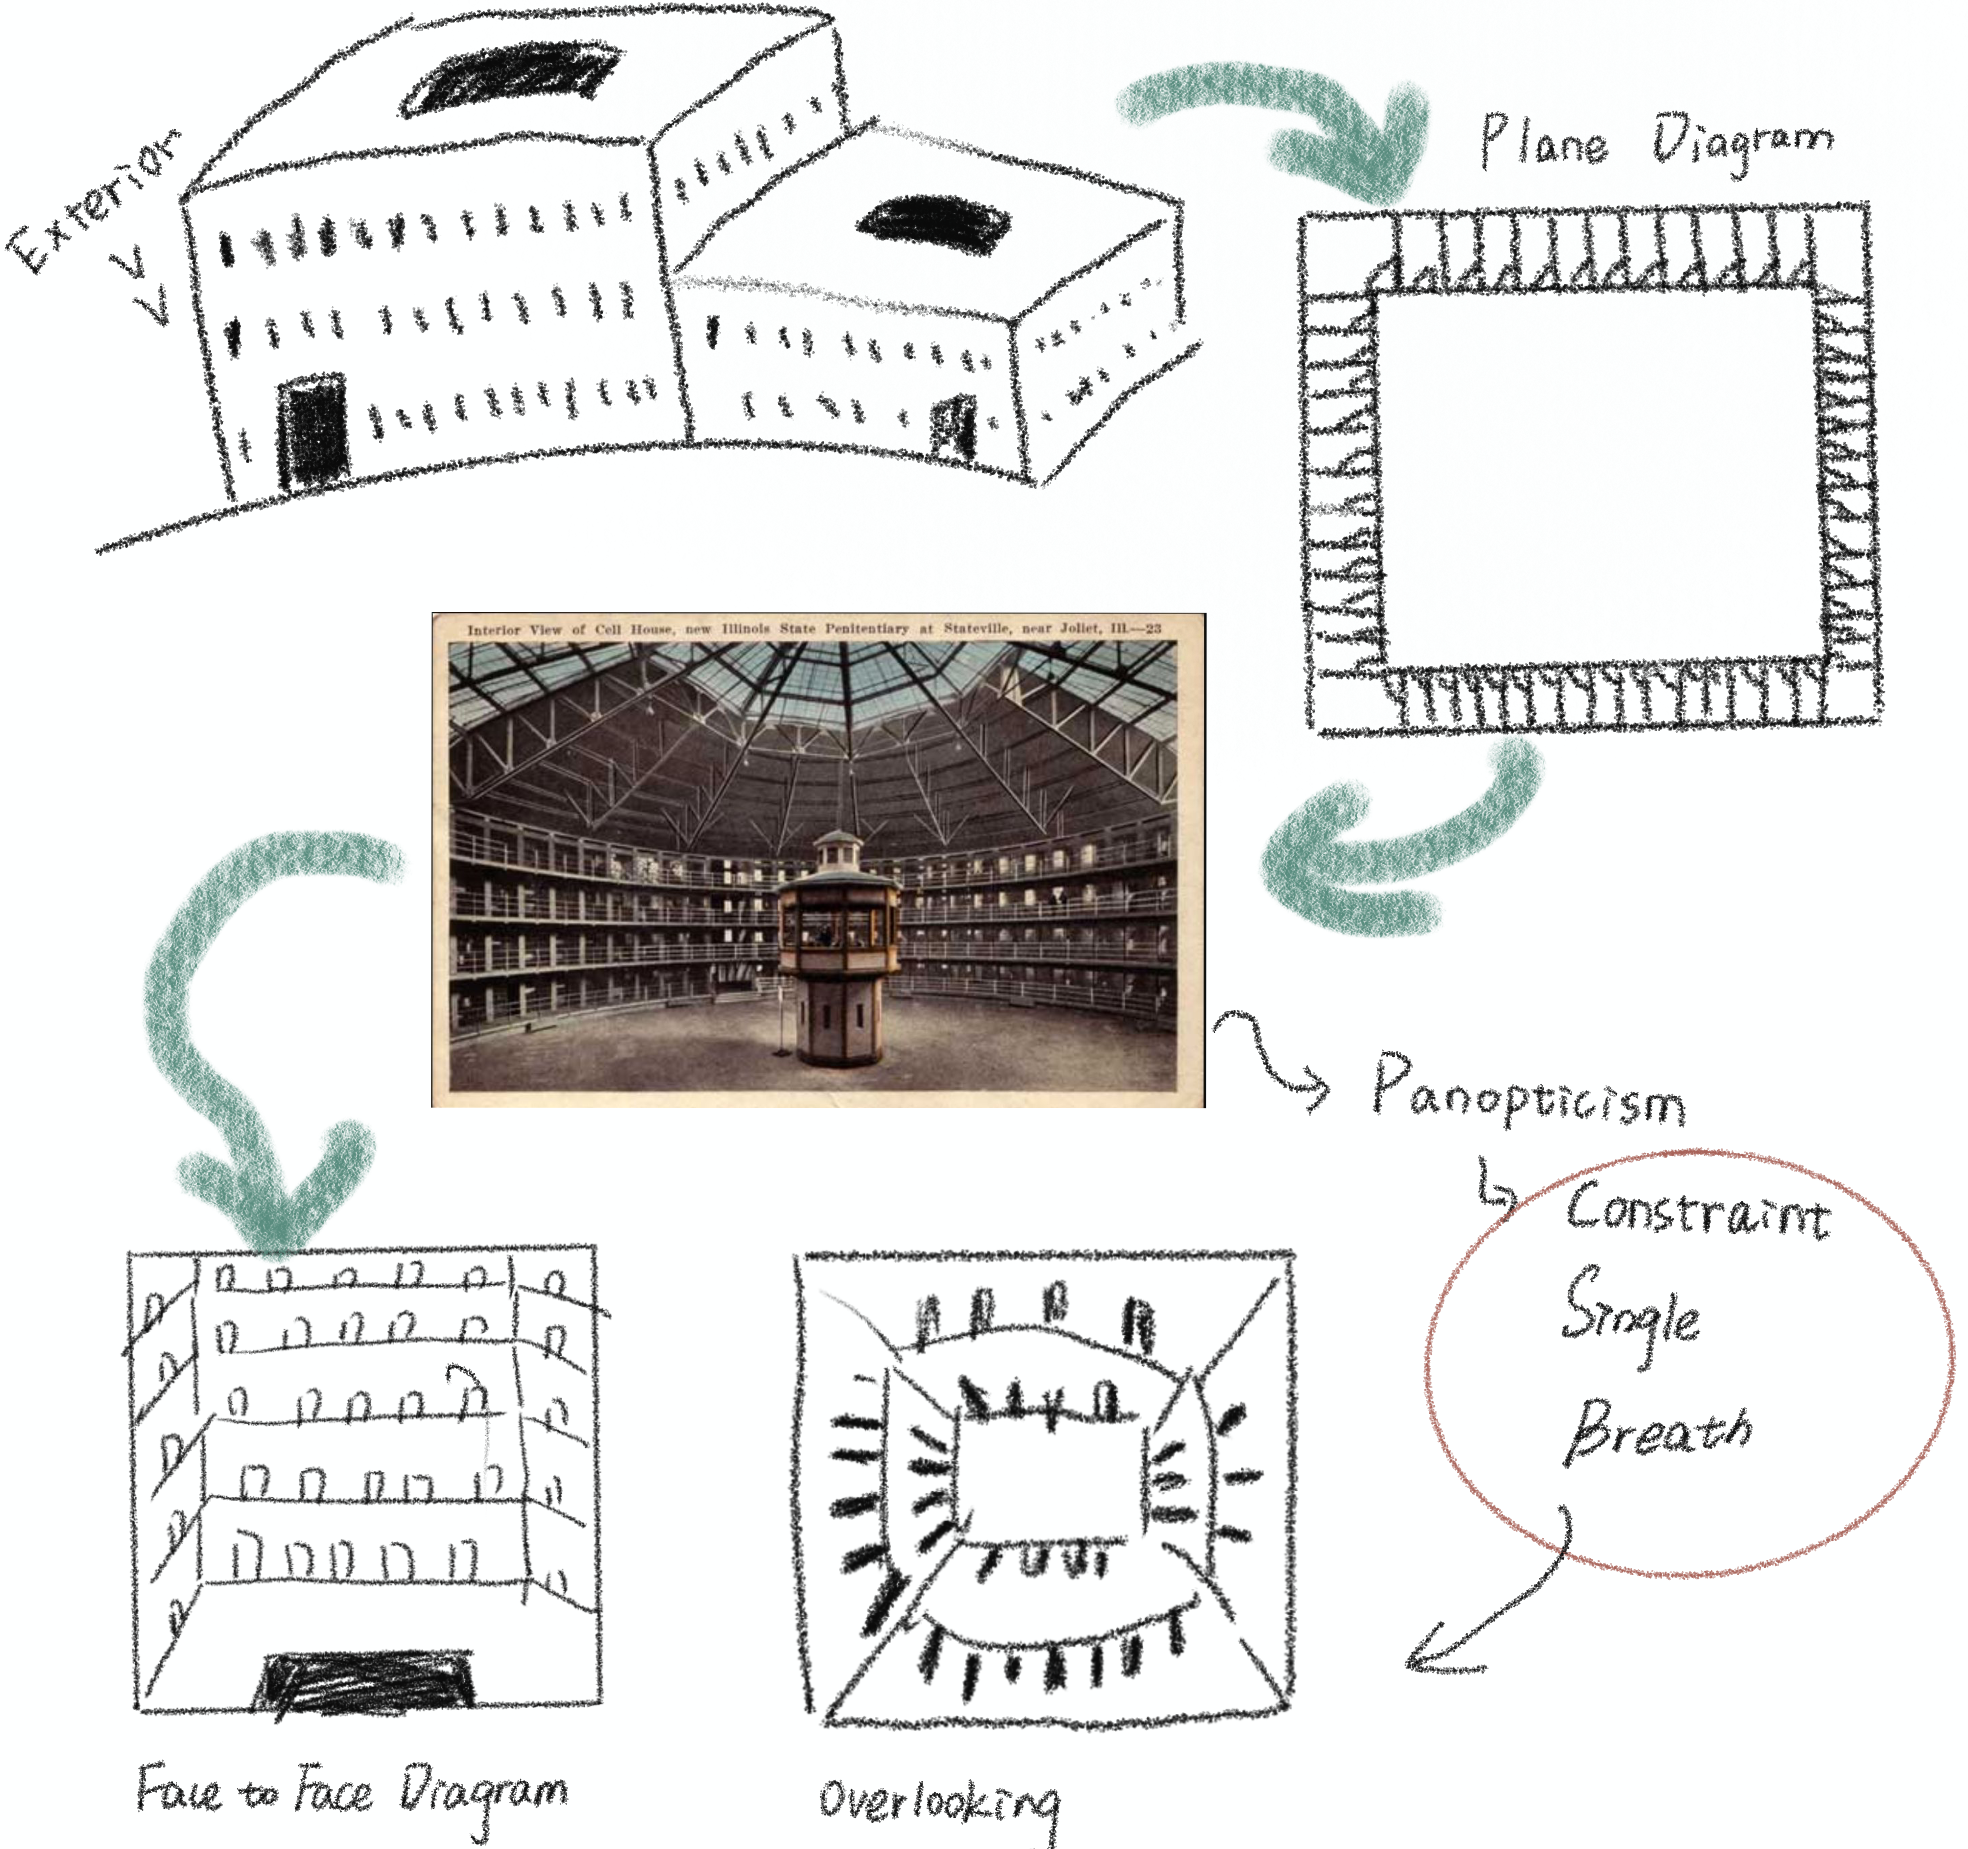 Exterior
Plane Diagram
Interior View of Cell House, new Illinois State Penitentiary at Stateville, near Joliet, Ill.—23
Panopticism
Constraint
Single
Breath
Face to Face Diagram
Overlooking